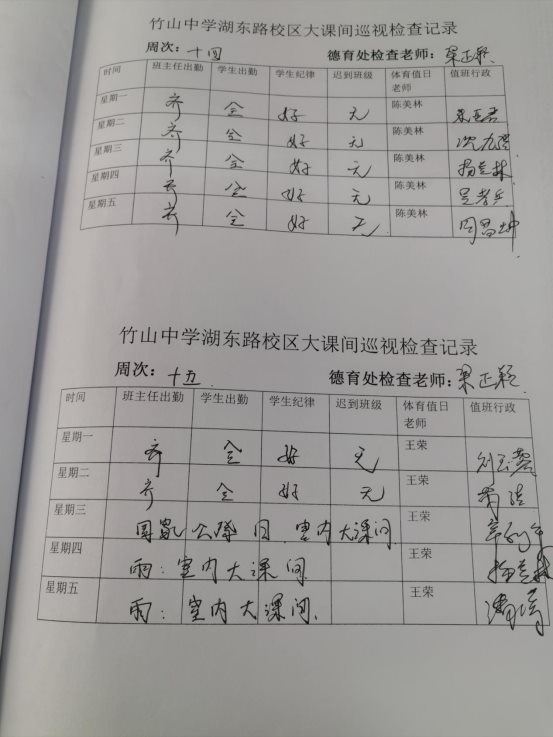 竹山中学湖东路校区大课间巡视检查记录
周次：十四 德育处检查老师：梁正颖
时间 班主任出勤 学生出勤 学生纪律 迟到班级 体育值日老师 值班行政
星期一 齐 全 好 无 陈美林
星期二 齐 全 好 无 陈美林
星期三 齐 全 好 无 陈美林 杨竞林
星期四 齐 全 好 无 陈美林
星期五 齐 全 好 无 陈美林 周昌坤
竹山中学湖东路校区大课间巡视检查记录
周次：十五 德育处检查老师：梁正颖
时间 班主任出勤 学生出勤 学生纪律 迟到班级 体育值日老师 值班行政
星期一 齐 全 好 无 王荣
星期二 齐 全 好 无 王荣
星期三 国家公祭日.室内大课间 王荣
星期四 雨：室内大课间 王荣 杨竞林
星期五 雨：室内大课间. 王荣